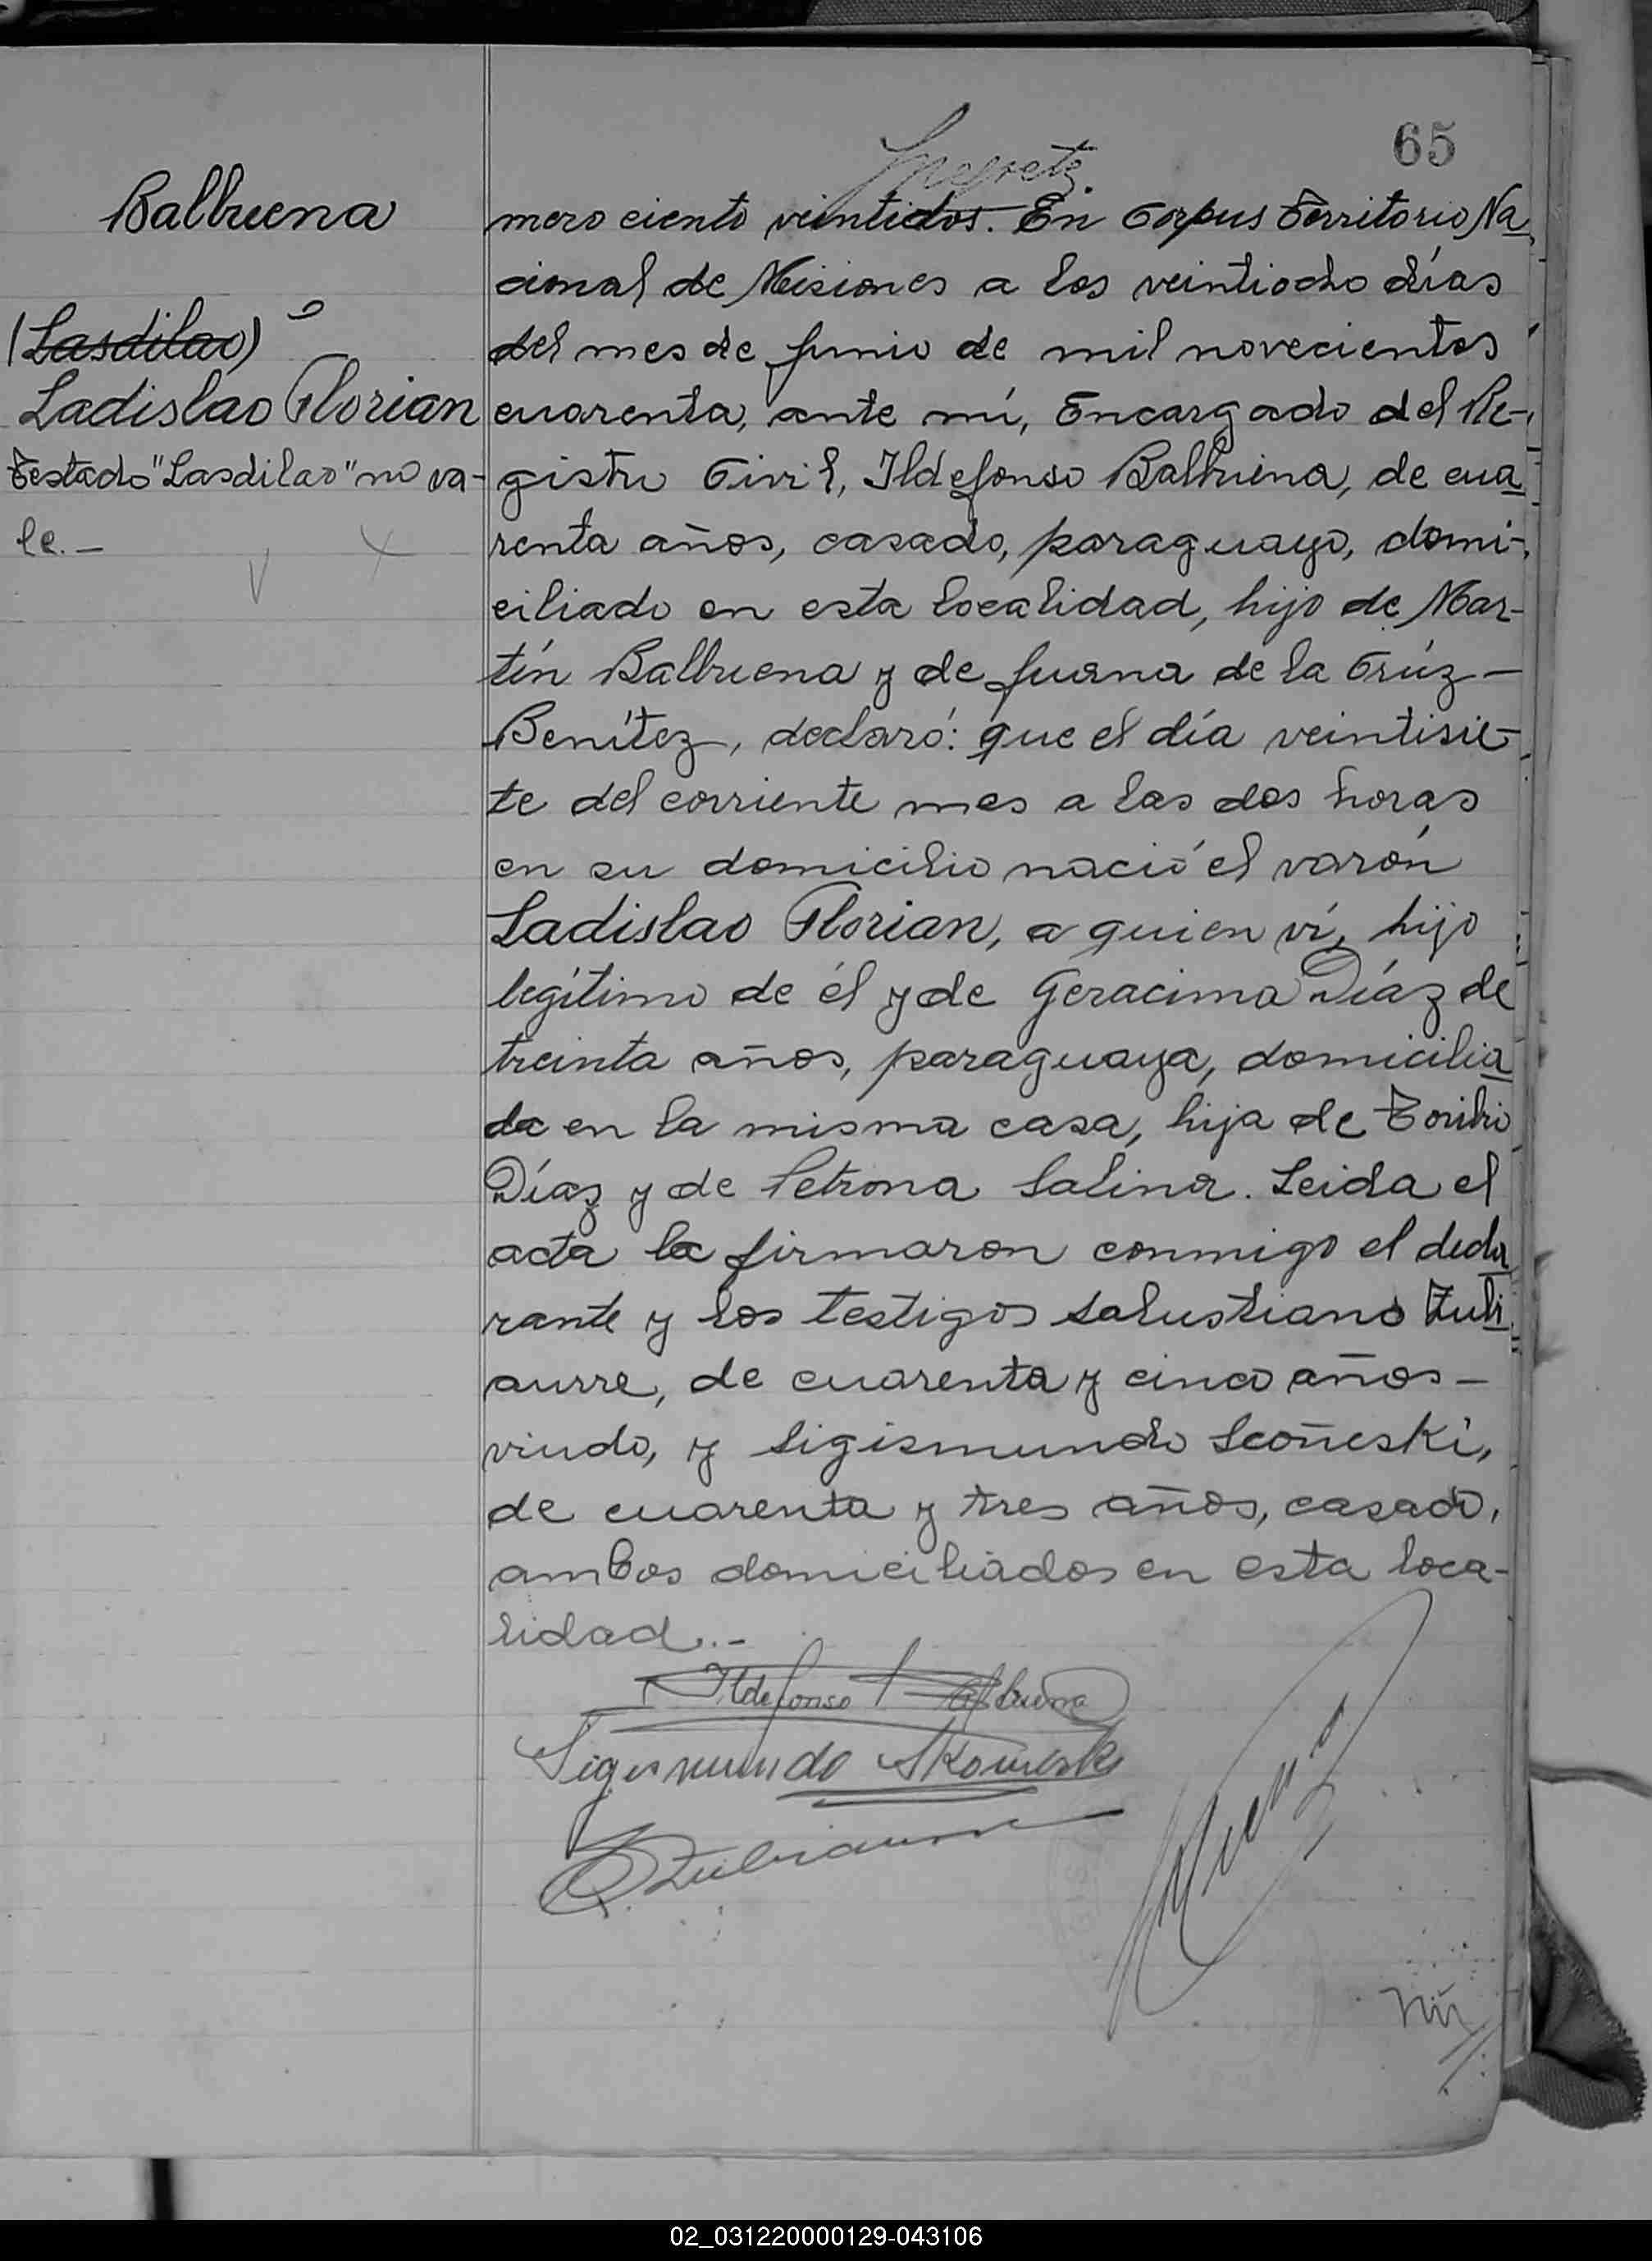 65
Balbuena
(Lasdilao)
Ladislao Florian
Testado "Lasdilao" no va-
le.-
mero ciento veintidos. En Corpus Territorio Na
cional de Misiones a los veintiocho días
del mes de Junio de mil novecientos
cuarenta, ante mí, Encargado del Re-
gistro Civil, Ildefonso Balbuena, de cua
renta años, casado, paraguayo, domi-
ciliado en esta localidad, hijo de Mar-
tín Balbuena y de Juana de la Crúz -
Benítez, declaró: que el día veintisie-
te del corriente mes a las dos horas
en su domicilio nació el varón
Ladislao Florian, a quien ví, hijo
legítimo de él y de Geracima Díaz de
treinta años, paraguaya, domicilia
da en la misma casa, hija de Toribio
Díaz y de Petrona Salina. Leida el
acta la firmaron conmigo el decla
rante y los testigos Salustiano Zubi
aurre, de cuarenta y cinco años -
viudo, y Sigismundo Scoñeski,
de cuarenta y tres años, casado,
ambos domiciliados en esta loca-
lidad.-
Ildefonso Balbuena
Sigismundo
Zubiaurre
02_031220000129-043106